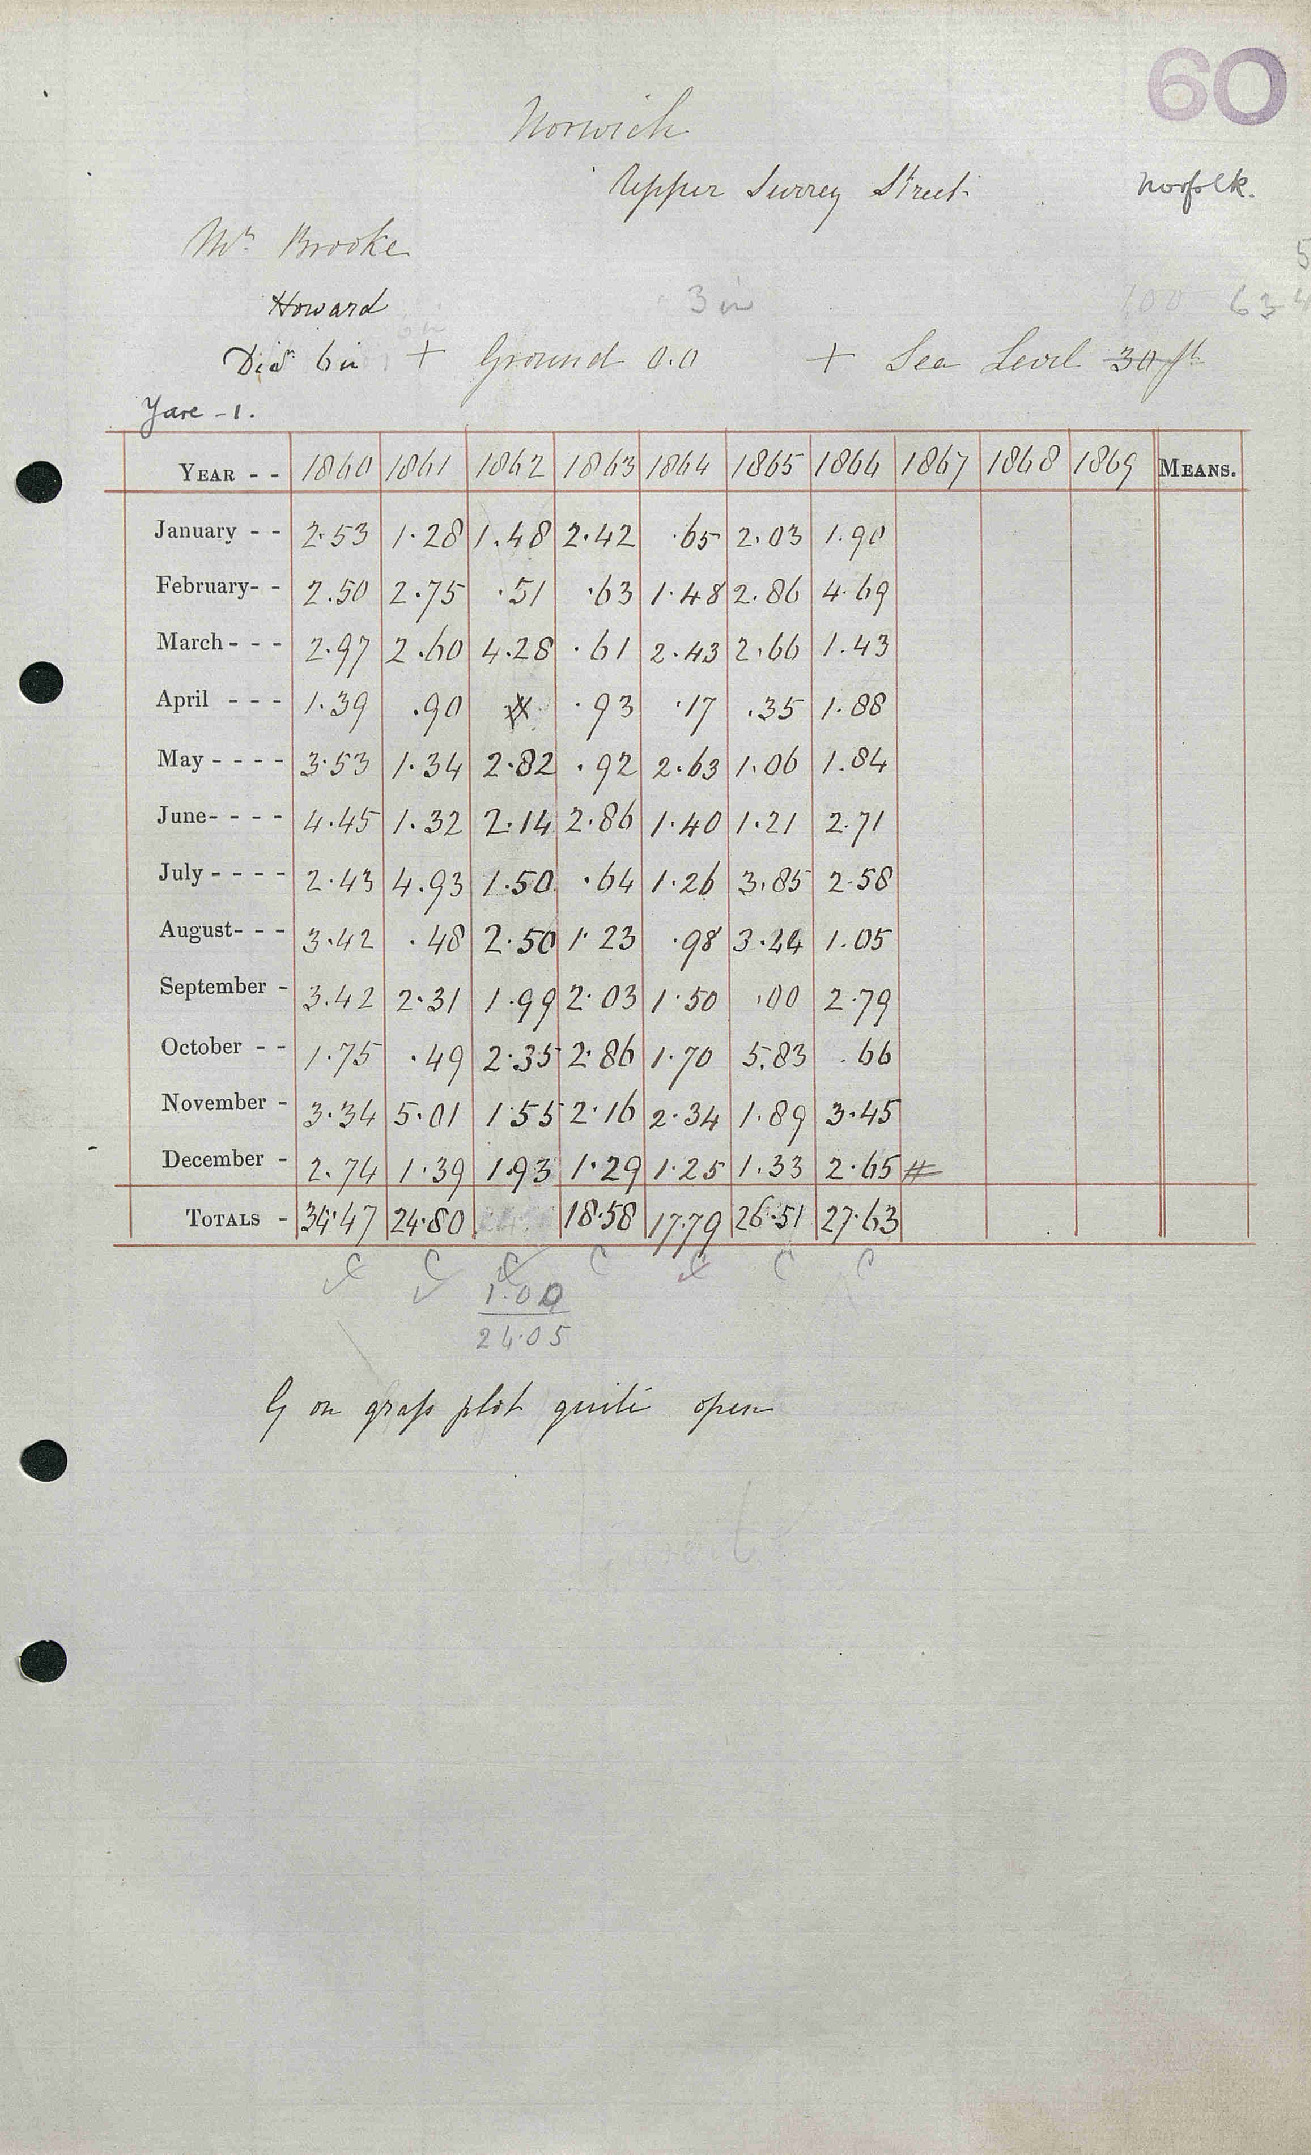 60
Norwich
Upper Surrey Street
Norfolk.
Mr Brooke
Howard
3 in
Diar 6 in + Ground 0.0 + Sea Level 30 ft
Yare - 1.
YEAR - - 1860 1861 1862 1863 1864 1865 1866 1867 1868 1869 MEANS.
January - - 2.53 1.28 1.48 2.42 .65 2.03 1.90
February- - 2.50 2.75 .51 .63 1.48 2.86 4.69
March - - - 2.97 2.60 4.28 .61 2.43 2.66 1.43
April - - - 1.39 .90 .93 .17 .35 1.88
May - - - - 3.53 1.34 2.82 .92 2.63 1.06 1.84
June- - - - 4.45 1.32 2.14 2.86 1.40 1.21 2.71
July - - - - 2.43 4.93 1.50 .64 1.26 3.85 2.58
August- - - 3.42 .48 2.50 1.23 .98 3.44 1.05
September - 3.42 2.31 1.99 2.03 1.50 .00 2.79
October - - 1.75 .49 2.35 2.86 1.70 5.83 .66
November - 3.34 5.01 1.55 2.16 2.34 1.89 3.45
December - 2.74 1.39 1.93 1.29 1.25 1.33 2.65 #
TOTALS - 34.47 24.80 18.58 17.79 26.51 27.63
1.00
24.05
G on grass plot quite open